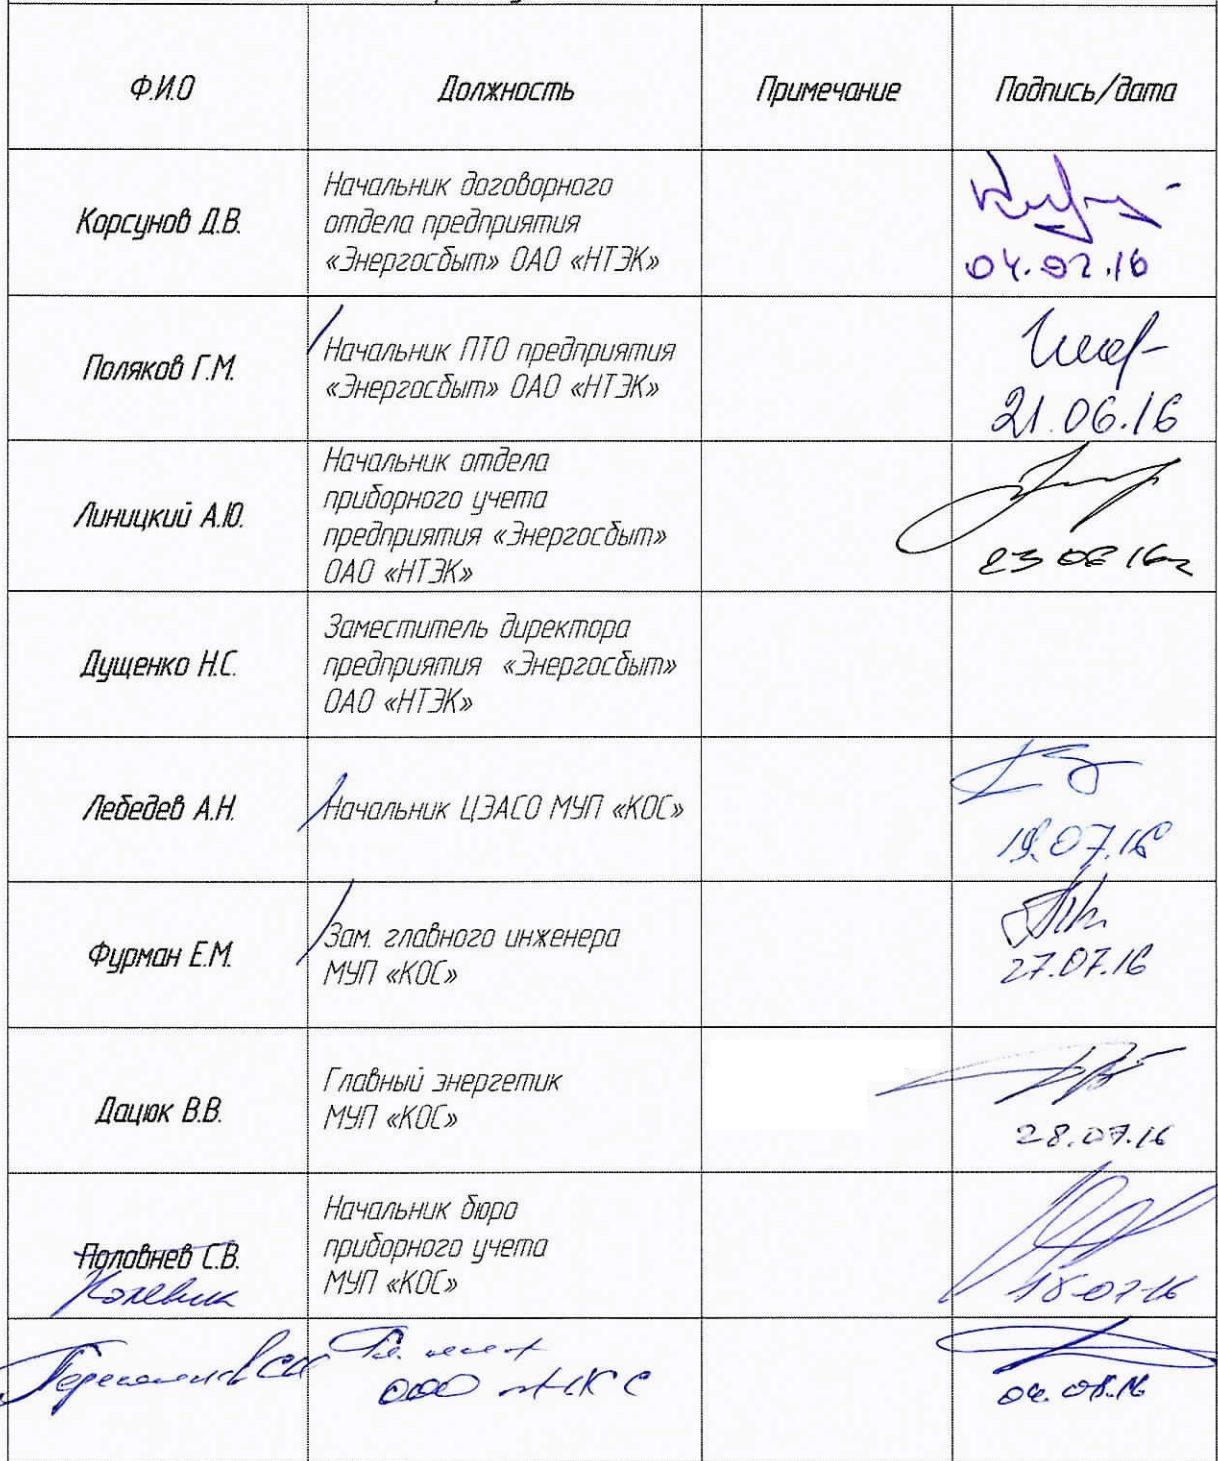 Ф.И.О
Должность
Примечание
Подпись/дата
Корсунов Д.В.
Начальник договорного
отдела предприятия
«Энергосбыт» ОАО «НТЭК»
04.02.16
Поляков Г.М.
Начальник ПТО предприятия
«Энергосбыт» ОАО «НТЭК»
21.06.16
Линицкий А.Ю.
Начальник отдела
приборного учета
предприятия «Энергосбыт»
ОАО «НТЭК»
23 06 16г
Дущенко Н.С.
Заместитель директора
предприятия «Энергосбыт»
ОАО «НТЭК»
Лебедев А.Н.
Начальник ЦЭАСО МУП «КОС»
19.07.16
Фурман Е.М.
Зам. главного инженера
МУП «КОС»
27.07.16
Дацюк В.В.
Главный энергетик
МУП «КОС»
28.07.16
Половнев С.В.
Начальник бюро
приборного учета
МУП «КОС»
18-07-16
ООО
04.08.16